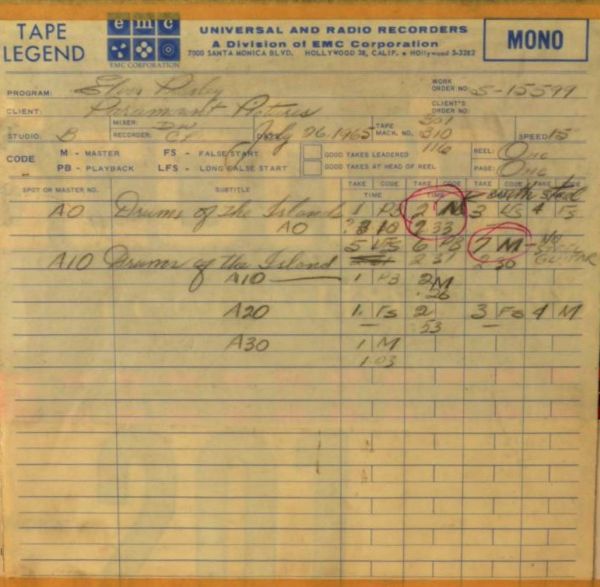 TAPE LEGEND
emc
EMC CORPORATION
UNIVERSAL AND RADIO RECORDERS
A Division of EMC Corporation
7000 SANTA MONICA BLVD. HOLLYWOOD 38, CALIF. • HOllywood 3-3282
MONO
PROGRAM: Elvis Presley
WORK ORDER NO. S-15599
CLIENT: Paramount Pictures
CLIENT'S ORDER NO.
STUDIO: B MIXER: RECORDER: DATE: July 26, 1965 TAPE MACH. NO. 310 116 SPEED: 15
CODE M - MASTER FS - FALSE START GOOD TAKES LEADERED REEL: One
PB - PLAYBACK LFS - LONG FALSE START GOOD TAKES AT HEAD OF REEL PAGE: One
SPOT OR MASTER NO. SUBTITLE TAKE CODE TAKE CODE TAKE CODE TAKE CODE
TIME
AO Drums of the Islands 1 PB 2 M 3 FS 4 FS
AO 2 33
5 LFS 6 PB 7 M - NO STEEL GUITAR
2 37 2 30
A10 Drums of the Island
A10 1 PB 2 M
.26
A20 1 FS 2 3 FS 4 M
.53
A30 1 M
1.03